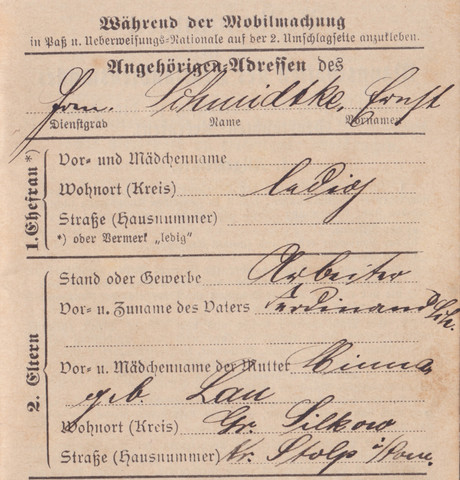 Während der Mobilmachung
in Paß u. Ueberweisungs-Nationale auf der 2. Umschlagseite anzukleben.
Angehörigen-Adressen des
Schmidtke, Ernst
Dienstgrad Name Vornamen
1. Ehefrau*)
Vor- und Mädchenname
Wohnort (Kreis) ledig
Straße (Hausnummer)
*) oder Vermerk „ledig“
2. Eltern
Stand oder Gewerbe Arbeiter
Vor- u. Zuname des Vaters Ferdinand Sch.
Vor- u. Mädchenname der Mutter Minna
geb. Lau
Wohnort (Kreis) Gr. Silkow
Straße (Hausnummer) Kr. Stolp i/Pom.